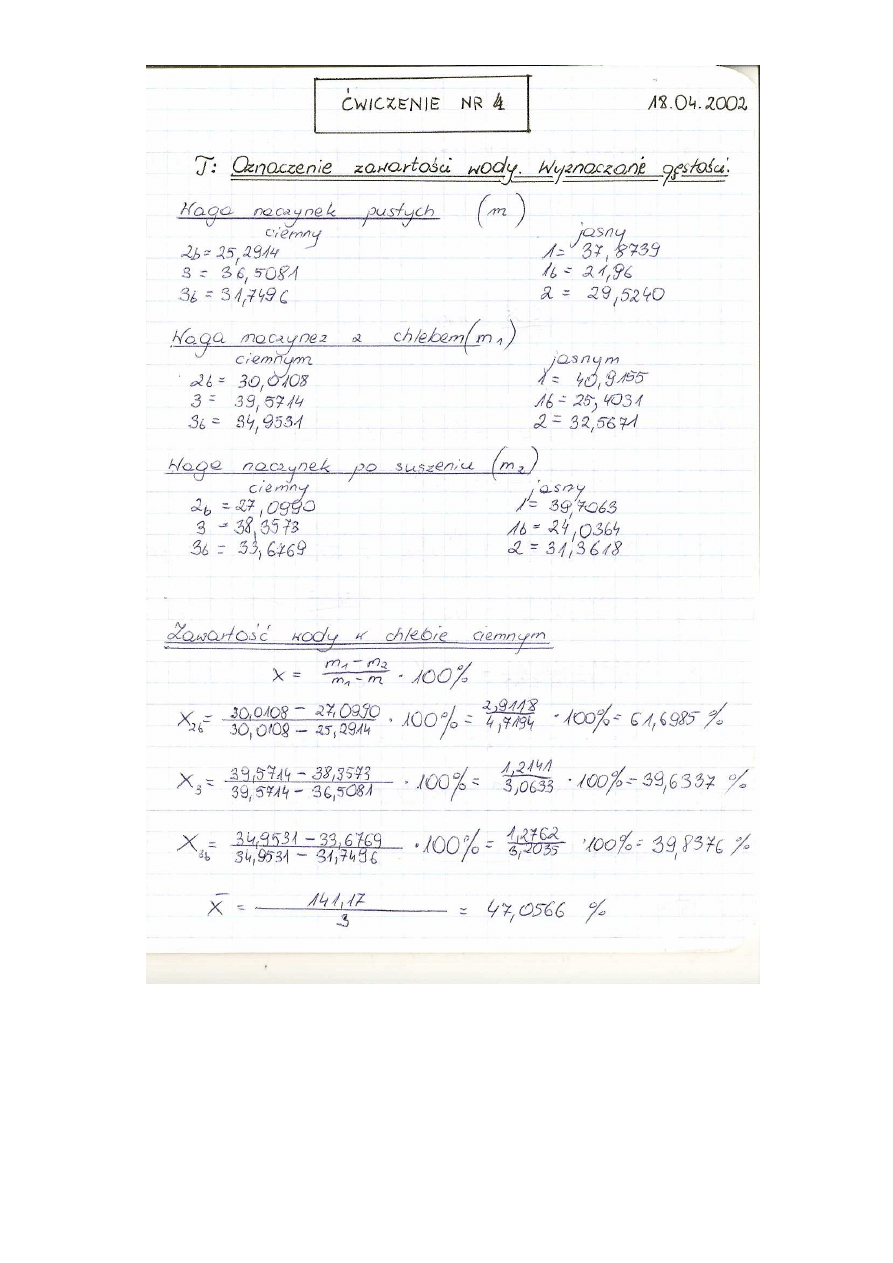 ĆWICZENIE NR 4 18.04.2002
T: Oznaczenie zawartości wody. Wyznaczanie gęstości.
Waga naczynek pustych (m)
ciemny jasny
2b = 25,2914 1 = 37,8739
3 = 36,5081 1b = 21,96
3b = 31,7496 2 = 29,5240
Waga naczynez z chlebem (m₁)
ciemnym jasnym
2b = 30,0108 1 = 40,9155
3 = 39,5714 1b = 25,4031
3b = 34,9531 2 = 32,5671
Waga naczynek po suszeniu (m₂)
ciemny jasny
2b = 27,0990 1 = 39,7063
3 = 38,3573 1b = 24,0364
3b = 33,6769 2 = 31,3618
Zawartość wody w chlebie ciemnym
X = (m₁ - m₂)/(m₁ - m) · 100%
X2b = (30,0108 - 27,0990)/(30,0108 - 25,2914) · 100% = 2,9118/4,7194 · 100% = 61,6985 %
X3 = (39,5714 - 38,3573)/(39,5714 - 36,5081) · 100% = 1,2141/3,0633 · 100% = 39,6337 %
X3b = (34,9531 - 33,6769)/(34,9531 - 31,7496) · 100% = 1,2762/3,2035 · 100% = 39,8376 %
X̄ = 141,17/3 = 47,0566 %